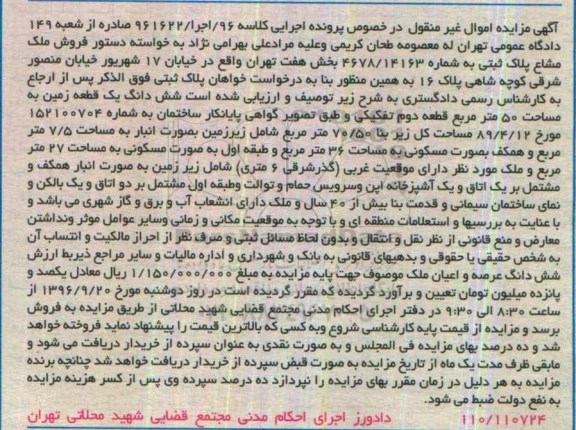 آگهی مزایده اموال غیر منقول در خصوص پرونده اجرایی کلاسه ۹۶/اجرا/۹۶۱۶۲۲ صادره از شعبه ۱۴۹
دادگاه عمومی تهران له معصومه طحان کریمی وعلیه مرادعلی بهرامی نژاد به خواسته دستور فروش ملک
مشاع پلاک ثبتی به شماره ۴۶۷۸/۱۴۱۶۳ بخش هفت تهران واقع در خیابان ۱۷ شهریور خیابان منصور
شرقی کوچه شاهی پلاک ۱۶ به همین منظور بنا به درخواست خواهان پلاک ثبتی فوق الذکر پس از ارجاع
به کارشناس رسمی دادگستری به شرح زیر توصیف و ارزیابی شده است شش دانگ یک قطعه زمین به
مساحت ۵۰ متر مربع قطعه دوم تفکیکی و طبق تصویر گواهی پایانکار ساختمان به شماره ۱۵۲۱۰۰۷۰۴
مورخ ۸۹/۴/۱۲ مساحت کل زیر بنا ۷۰/۵۰ متر مربع شامل زیرزمین بصورت انبار به مساحت ۷/۵ متر
مربع و همکف بصورت مسکونی به مساحت ۳۶ متر مربع و طبقه اول به صورت مسکونی به مساحت ۲۷ متر
مربع و ملک مورد نظر دارای موقعیت غربی (گذرشرقی ۶ متری) شامل زیر زمین به صورت انبار همکف و
مشتمل بر یک اتاق و یک آشپزخانه اپن وسرویس حمام و توالت وطبقه اول مشتمل بر دو اتاق و یک بالکن و
نمای ساختمان سیمانی و قدمت بنا بیش از ۴۰ سال و ملک دارای انشعاب آب و برق و گاز شهری می باشد و
با عنایت به بررسیها و استعلامات منطقه ای و با توجه به موقعیت مکانی و زمانی وسایر عوامل موثر ونداشتن
معارض و منع قانونی از نظر نقل و انتقال و بدون لحاظ مسائل ثبتی و صرف نظر از احراز مالکیت و انتساب آن
به شخص حقیقی یا حقوقی و بدهیهای قانونی به بانک و شهرداری و اداره مالیات و سایر مراجع ذیربط ارزش
شش دانگ عرصه و اعیان ملک موصوف جهت پایه مزایده به مبلغ ۱/۱۵۰/۰۰۰/۰۰۰ ریال معادل یکصد و
پانزده میلیون تومان تعیین و برآورد گردیده که مقرر گردیده است در روز دوشنبه مورخ ۱۳۹۶/۹/۲۰ از
ساعت ۸:۳۰ الی ۹:۳۰ در دفتر اجرای احکام مدنی مجتمع قضایی شهید محلاتی از طریق مزایده به فروش
برسد و مزایده از قیمت پایه کارشناسی شروع وبه کسی که بالاترین قیمت را پیشنهاد نماید فروخته خواهد
شد و ده درصد بهای مزایده فی المجلس و به صورت نقدی به عنوان سپرده از خریدار دریافت می شود و
مابقی ظرف مدت یک ماه از تاریخ مزایده به صورت قبض سپرده از خریدار دریافت خواهد شد چنانچه برنده
مزایده به هر دلیل در زمان مقرر بهای مزایده را نپردازد ده درصد سپرده وی پس از کسر هزینه مزایده
به نفع دولت ضبط می شود.
۱۱۰/۱۱۰۷۲۴ دادورز اجرای احکام مدنی مجتمع قضایی شهید محلاتی تهران